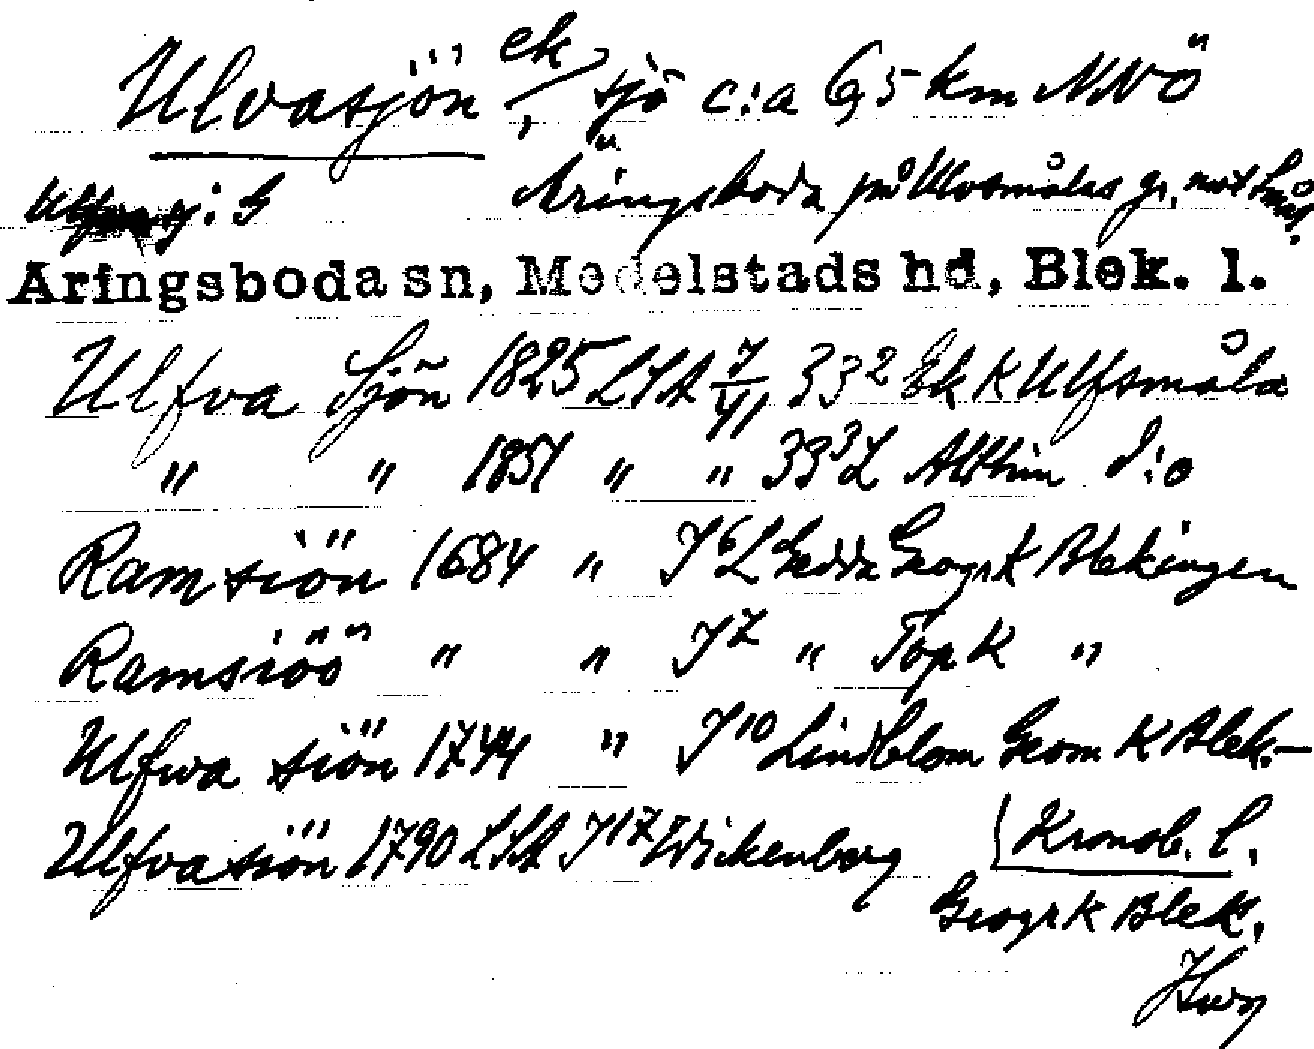 Ulvasjön ek, sjö c:a 6,5 km NNÖ
Äringsboda på Ulvsmålas gr. mot Smål.
Aringsboda sn, Medelstads hd, Blek. l.
Ulfva Sjön 1825 LSA 7/VI 33² Ek K Ulfsmåla
" " 1851 " " 33³ L Afkhin d:o
Ramsiön 1684 " J⁶ L Gedda Geogr K Blekingen
Ramsiöö " " J⁷ " Top K "
Ulfwa siön 1744 " J¹⁰ Lindblom Geom K Blek.-
Ulfva siön 1790 LSA J¹⁷ Wickenberg (Kronob. l.
Geogr K Blek.